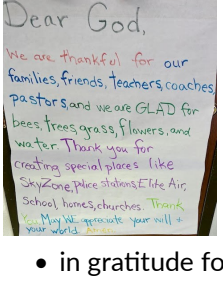 Dear God,
We are thankful for our
families, friends, teachers, coaches,
pastors, and we are GLAD for
bees, trees, grass, flowers, and
water. Thank you for
creating special places like
SkyZone, police stations, Elite Air,
school homes, churches. Thank
You. May We appreciate your will +
your world. Amen.
• in gratitude fo